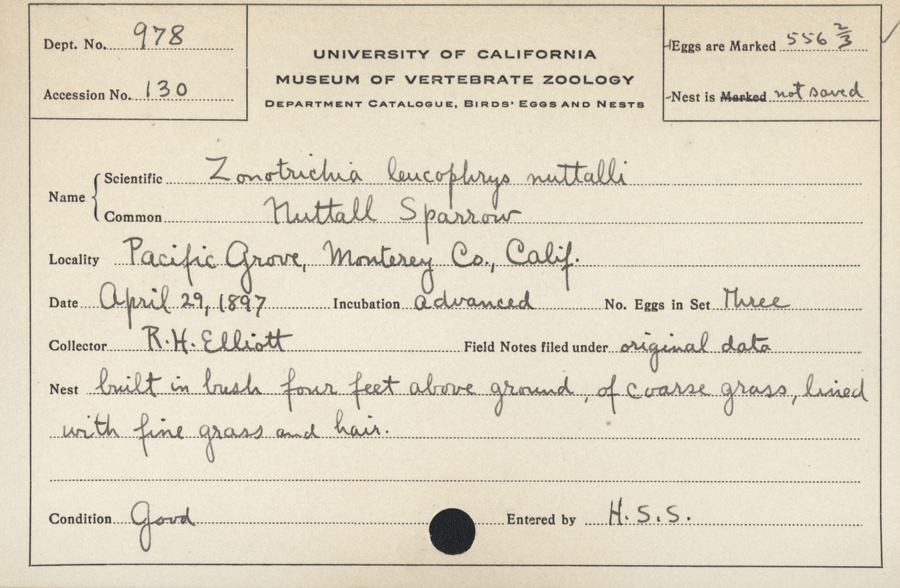 Dept. No. 978
Accession No. 130
UNIVERSITY OF CALIFORNIA
MUSEUM OF VERTEBRATE ZOOLOGY
DEPARTMENT CATALOGUE, BIRDS' EGGS AND NESTS
Eggs are Marked 556 2/3
Nest is Marked not saved
Name
Scientific Zonotrichia leucophrys nuttalli
Common Nuttall Sparrow
Locality Pacific Grove, Monterey Co., Calif.
Date April 29, 1897 Incubation advanced No. Eggs in Set Three
Collector R.H. Elliott Field Notes filed under original data
Nest built in bush four feet above ground, of coarse grass, lined
with fine grass and hair.
Condition Good Entered by H.S.S.